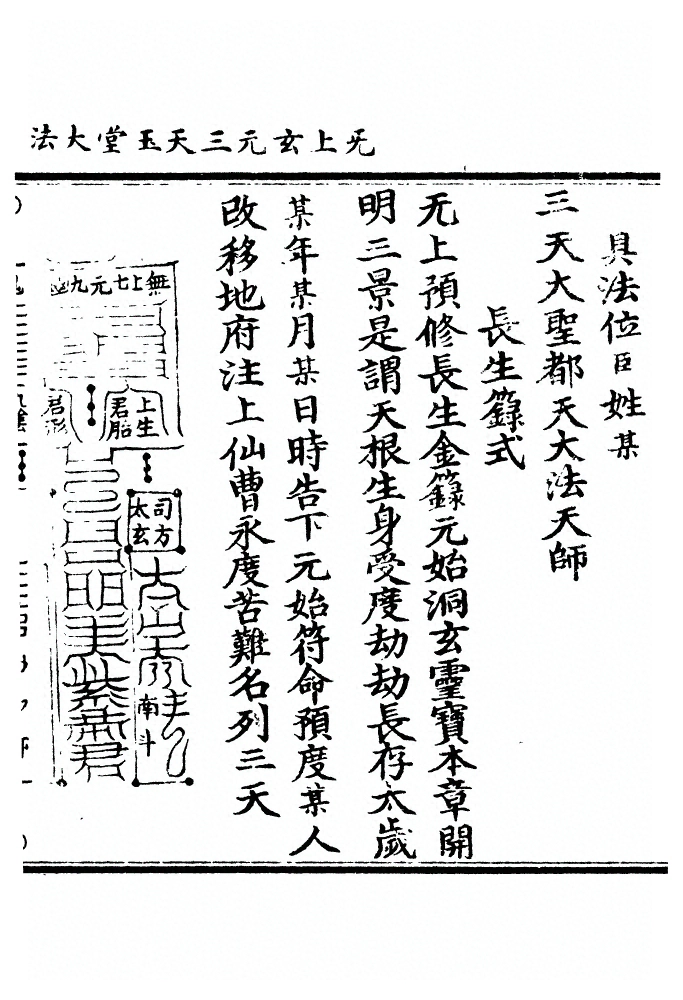 无上玄元三天玉堂大法
具法位臣姓某
三天大聖都天大法天師
長生籙式
无上預修長生金籙元始洞玄靈寶本章開
明三景是謂天根生身受度劫劫長存太歲
某年某月某日時告下元始符命預度某人
改移地府注上仙曹永度苦難名列三天
無上七元九
上生
君胎
司方
太玄
南斗